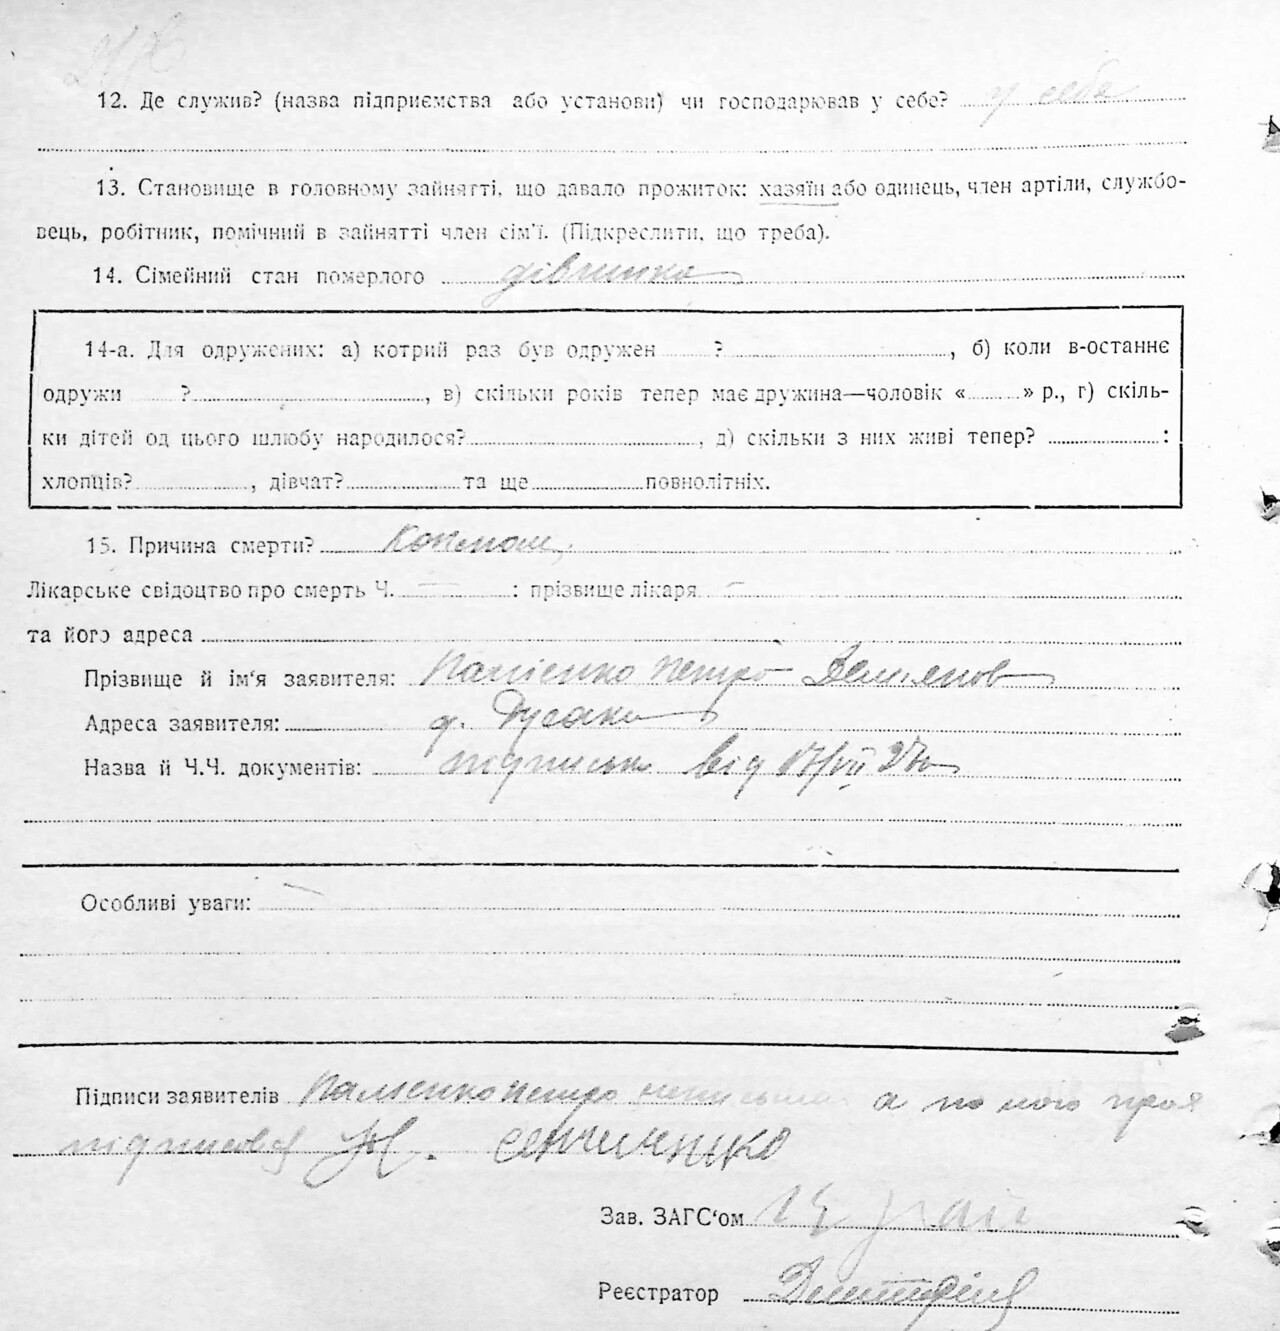 12. Де служив? (назва підприємства або установи) чи господарював у себе? у себе
13. Становище в головному зайнятті, що давало прожиток: хазяїн або одинець, член артіли, службо-
вець, робітник, помічний в зайнятті член сім'ї. (Підкреслити, що треба).
14. Сімейний стан померлого дівчинка
14-а. Для одружених: а) котрий раз був одружен ? , б) коли в-останнє
одружи ? , в) скільки років тепер має дружина—чоловік « » р., г) скіль-
ки дітей од цього шлюбу народилося? , д) скільки з них живі тепер? :
хлопців? , дівчат? та ще повнолітніх.
15. Причина смерти?
Лікарське свідоцтво про смерть Ч. — : прізвище лікаря —
та його адреса
Прізвище й ім'я заявителя: Петро Демянов
Адреса заявителя: Дусаки
Назва й Ч.Ч. документів: підписка від 17/VII 27
Особливі уваги: —
Підписи заявителів Петро а по його
підписався
Зав. ЗАГС'ом
Реєстратор